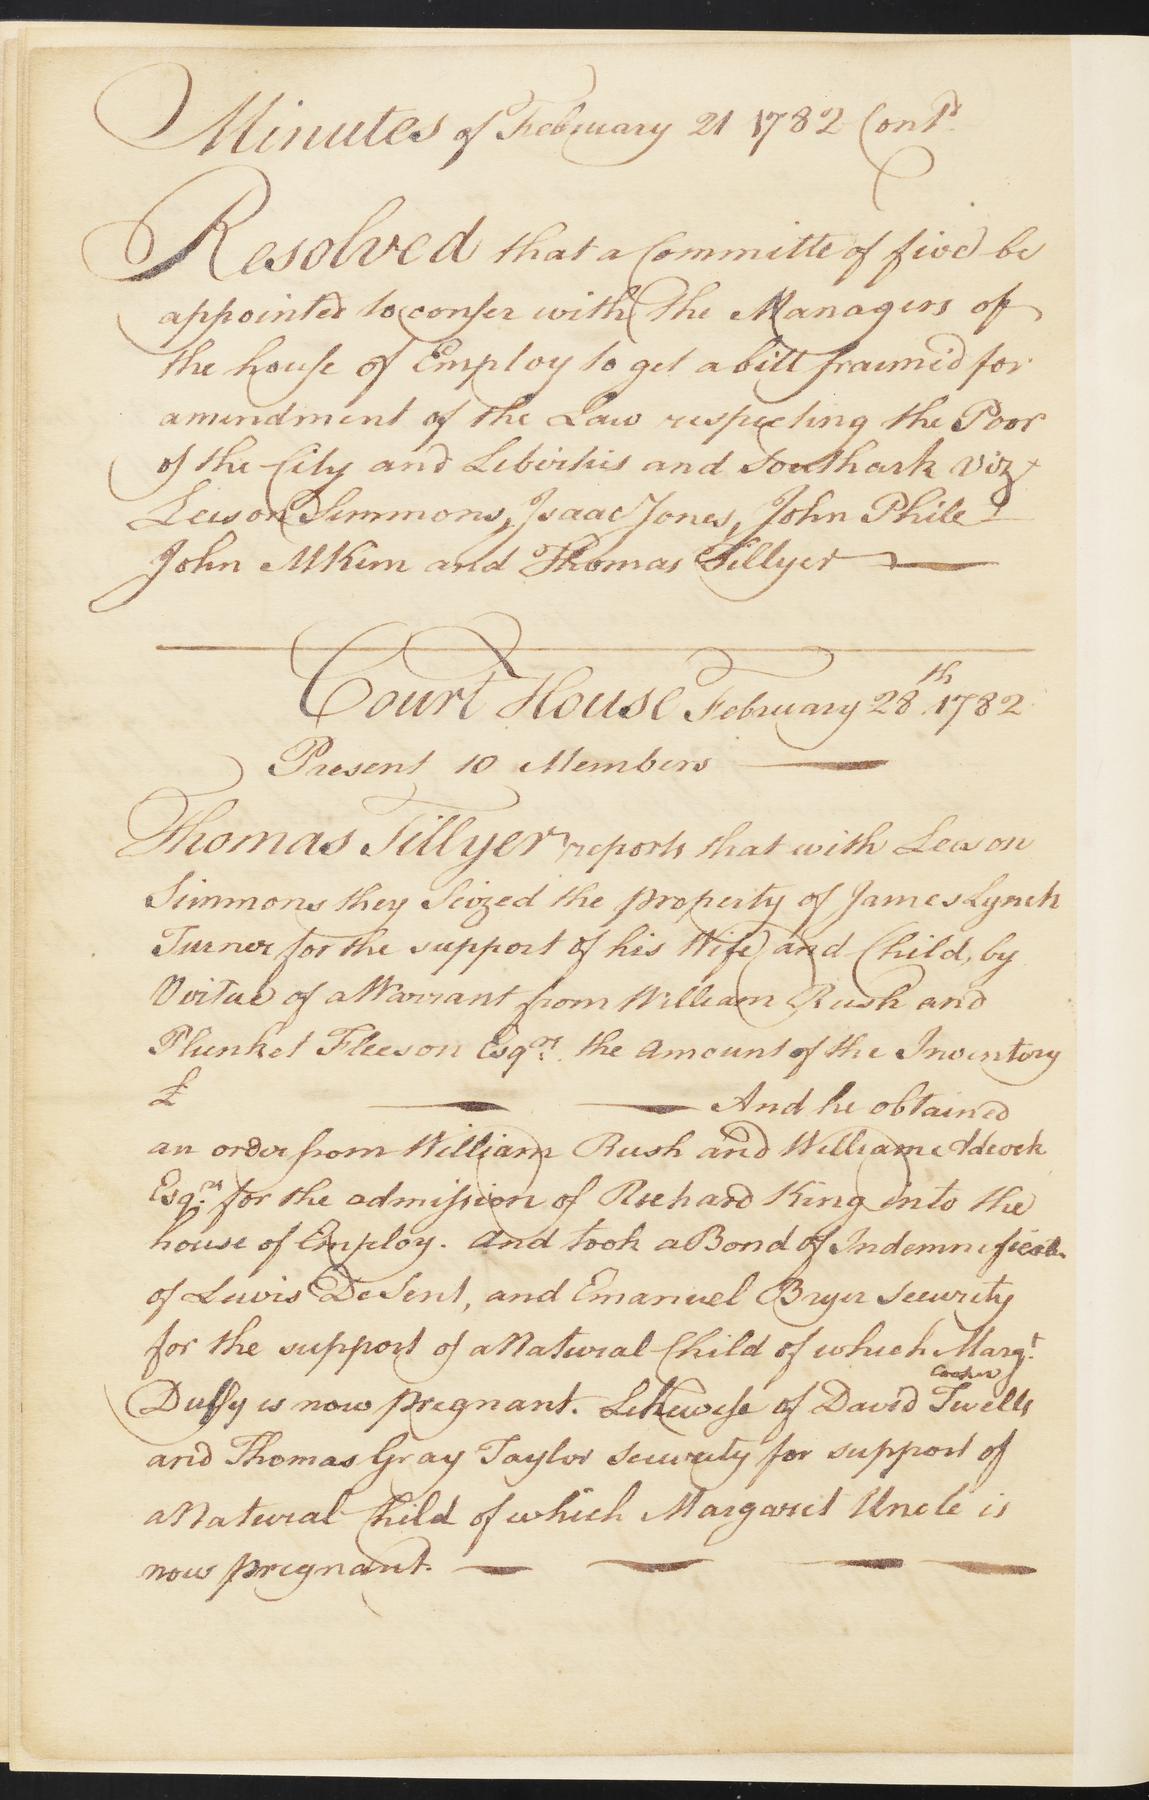 Minutes of February 21 1782 Cont.d
Resolved that a Committe of five be
appointed to confer with the Managers of
the house of Employ to get a bill framed for
amendment of the Law respecting the Poor
of the City and Liberties and Southark Viz.t
Leeson Simmons, Isaac Jones, John Phile
John McKim and Thomas Tillyer
Court House February 28th 1782
Present 10 Members
Thomas Tillyer reports that with Leeson
Simmons they Seized the property of James Lynch
Turner for the support of his Wife and Child, by
Virtue of a Warrant from William Rush and
Plunket Fleeson Esqrs. the Amount of the Inventory
£ And he obtained
an order from William Rush and William Adcock
Esqrs. for the admission of Richard King into the
house of Employ. And took a Bond of Indemnificat.
of Lewis DeSent, and Emanuel Bryer Security
for the support of a Natural Child of which Margt.
Duffy is now pregnant. Likewise of David Twells
and Thomas Gray Taylor Security for support of
a Natural Child of which Margaret Uncle is
now pregnant.